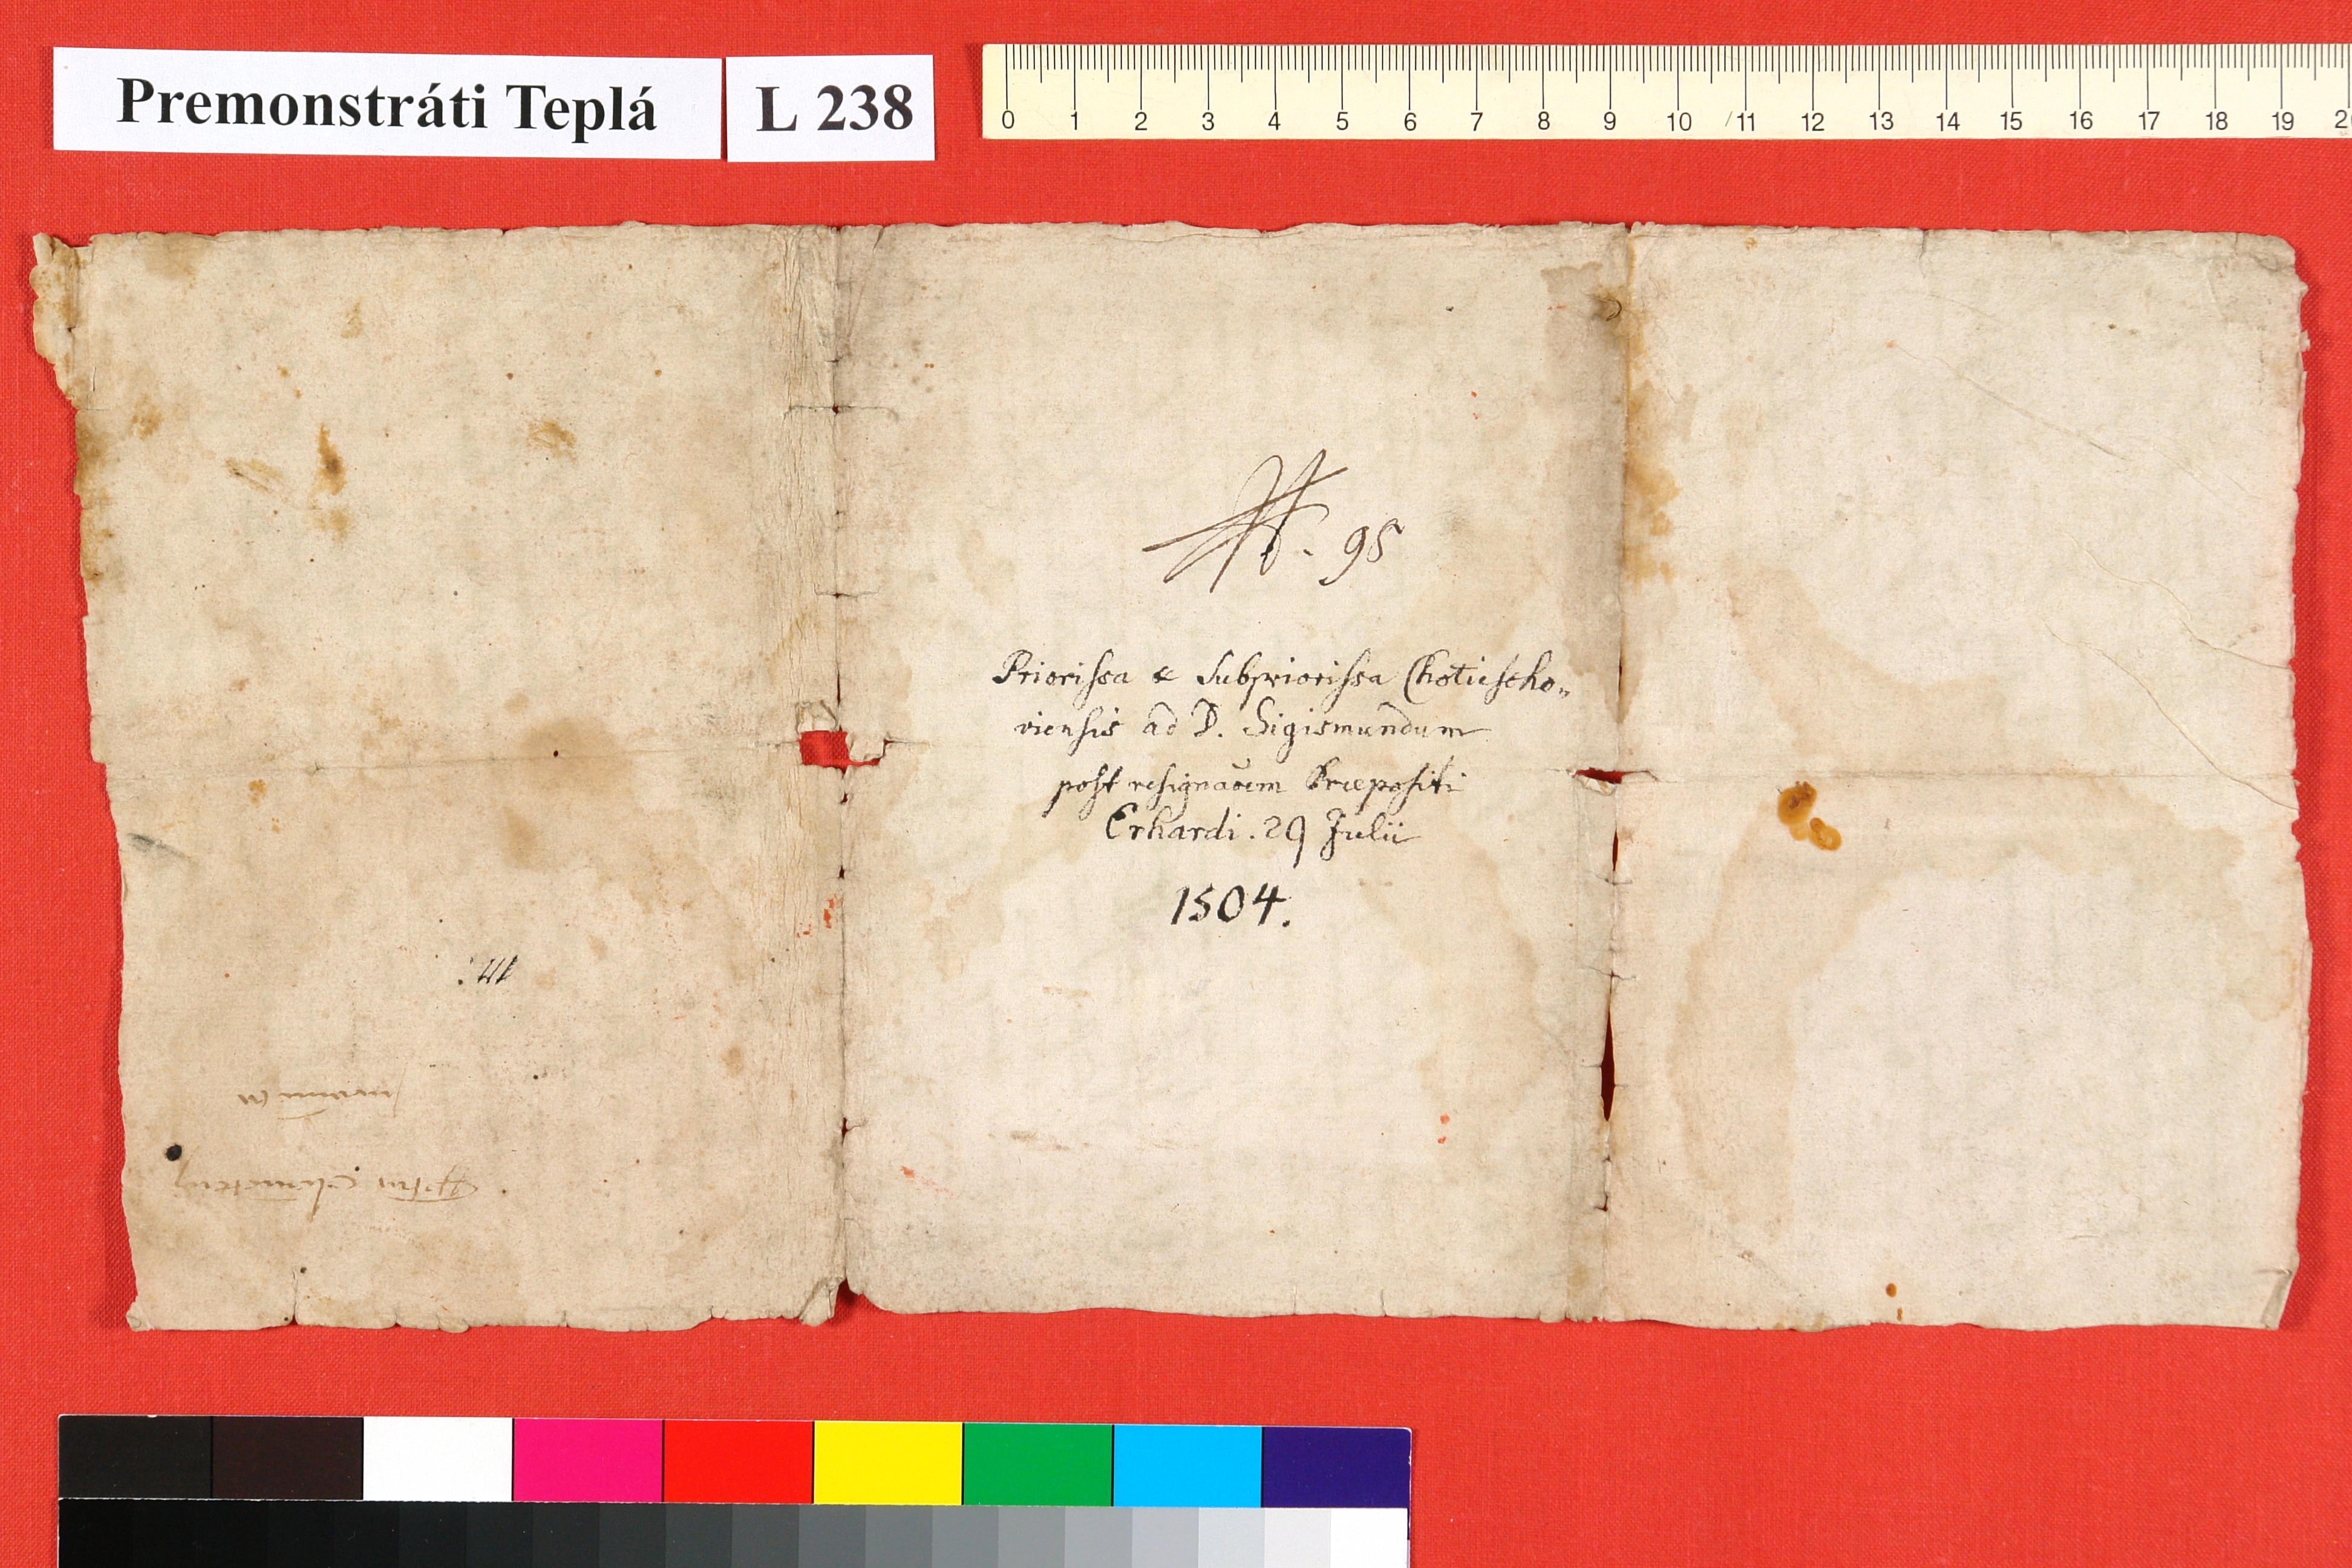 Premonstráti Teplá L 238
0 1 2 3 4 5 6 7 8 9 10 11 12 13 14 15 16 17 18 19 2
N. 95
Priorissa & Subpriorissa Chotiescho„
viensis ad D. Sigismundum
post resignaōem Præpositi
Erhardi. 29 Julii
1504.